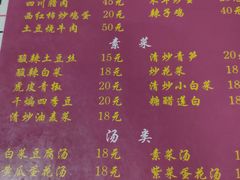 四川腊肉 48元 辣子鸡
西红柿炒鸡蛋 20元
土豆烧牛肉 50元
素菜
酸辣土豆丝 15元 清炒青笋
酸辣白菜 18元 炒花菜
虎皮青椒 20元 清炒小白菜
干煸四季豆 20元 糖醋莲白
清炒油麦菜 18元
汤类
白菜豆腐汤 18元 素菜汤
黄瓜蛋花汤 18元 紫菜蛋花汤